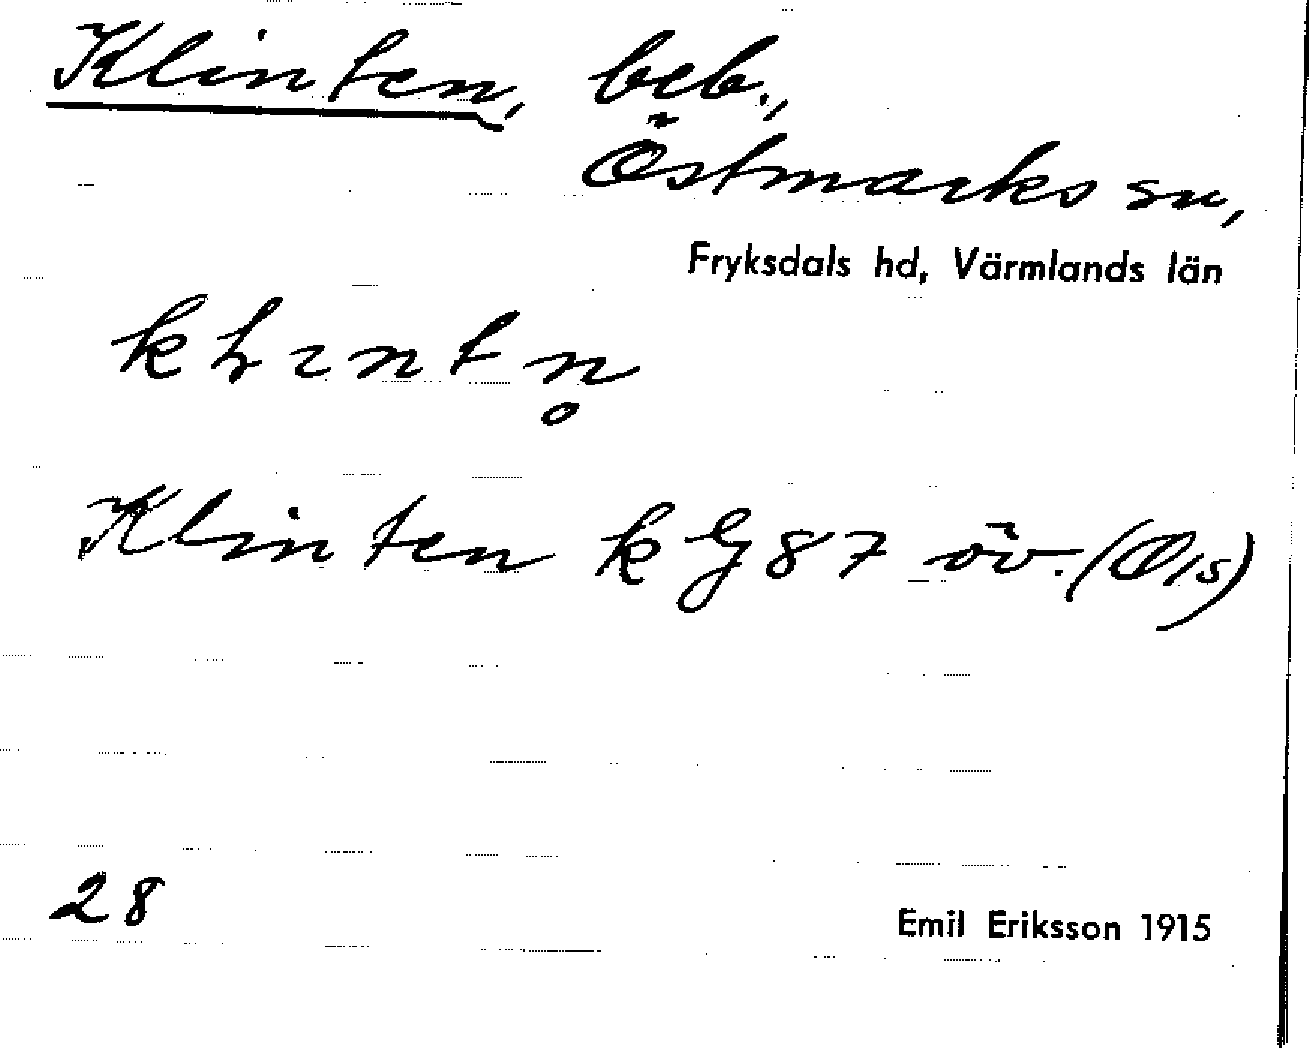 Klinten, beb.,
Östmarks sn,
Fryksdals hd, Värmlands län
Klinten k G 87 öv. (Ols)
28
Emil Eriksson 1915